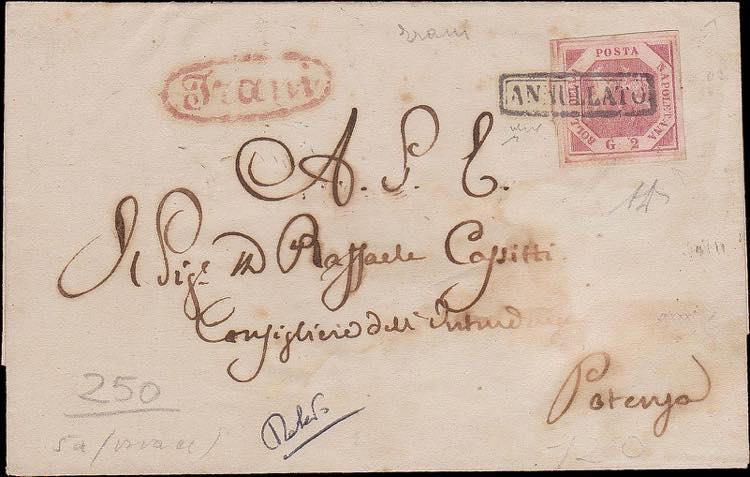 Trani
Trani
POSTA
NAPOLETANA
BOLLO
G. 2
ANNULLATO
A. S. E.
Il Sigr D Raffaele Cassitti
Consigliere dell'Intend
Potenza
250
5a (vivace)